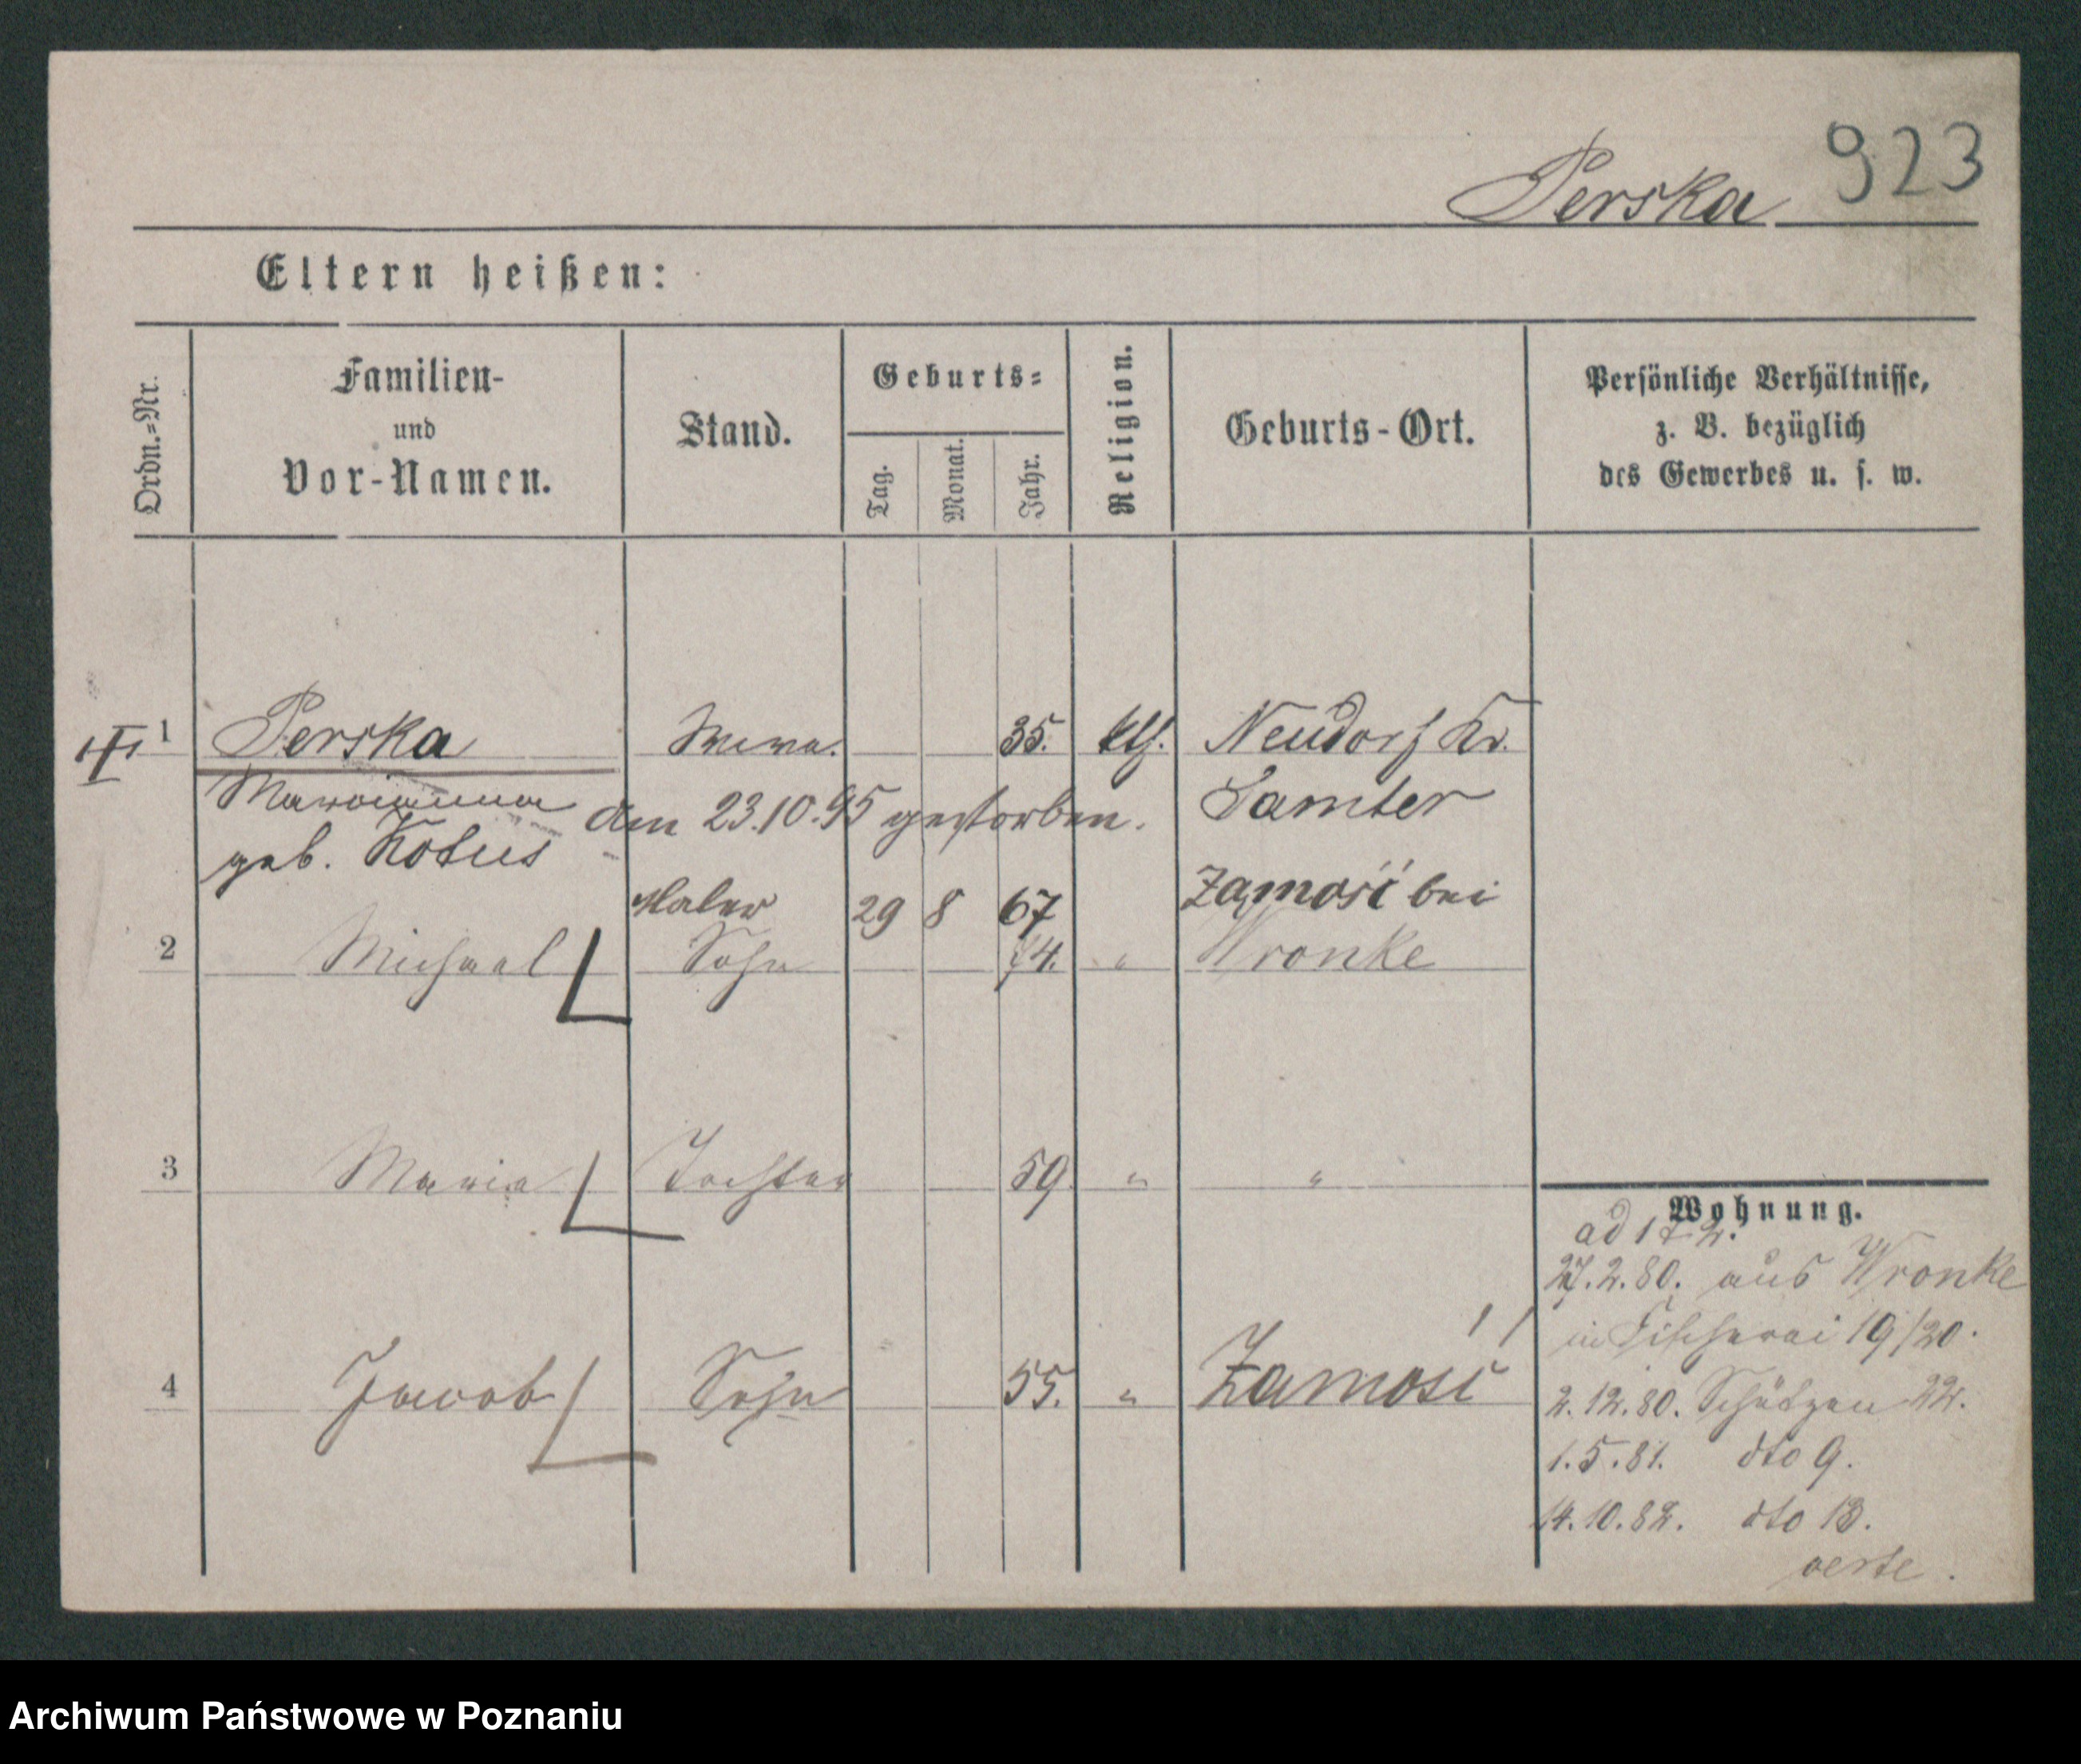 923
Perska
Eltern heißen:
Ordn.=Nr.
Familien-
und
Vor-Namen.
Stand.
Geburts=
Tag.
Monat.
Jahr.
Religion.
Geburts-Ort.
Persönliche Verhältnisse,
z. B. bezüglich
des Gewerbes u. s. w.
1 Perska Wwe. 35. kth. Neudorf Kr.
Marianna am 23.10.95 gestorben. Samter
geb. Kotus
Maler 29 8 67 Zamość bei
2 Michael Sohn 74. " Wronke
3 Maria Tochter 59. " "
Wohnung.
ad 1 & 2.
27.2.80. aus Wronke
in Fischerei 19/20.
4 Jacob Sohn 55. " Zamość
2.12.80. Schützen 22.
1.5.81. dto 9.
14.10.82. dto 13.
verte.
Archiwum Państwowe w Poznaniu